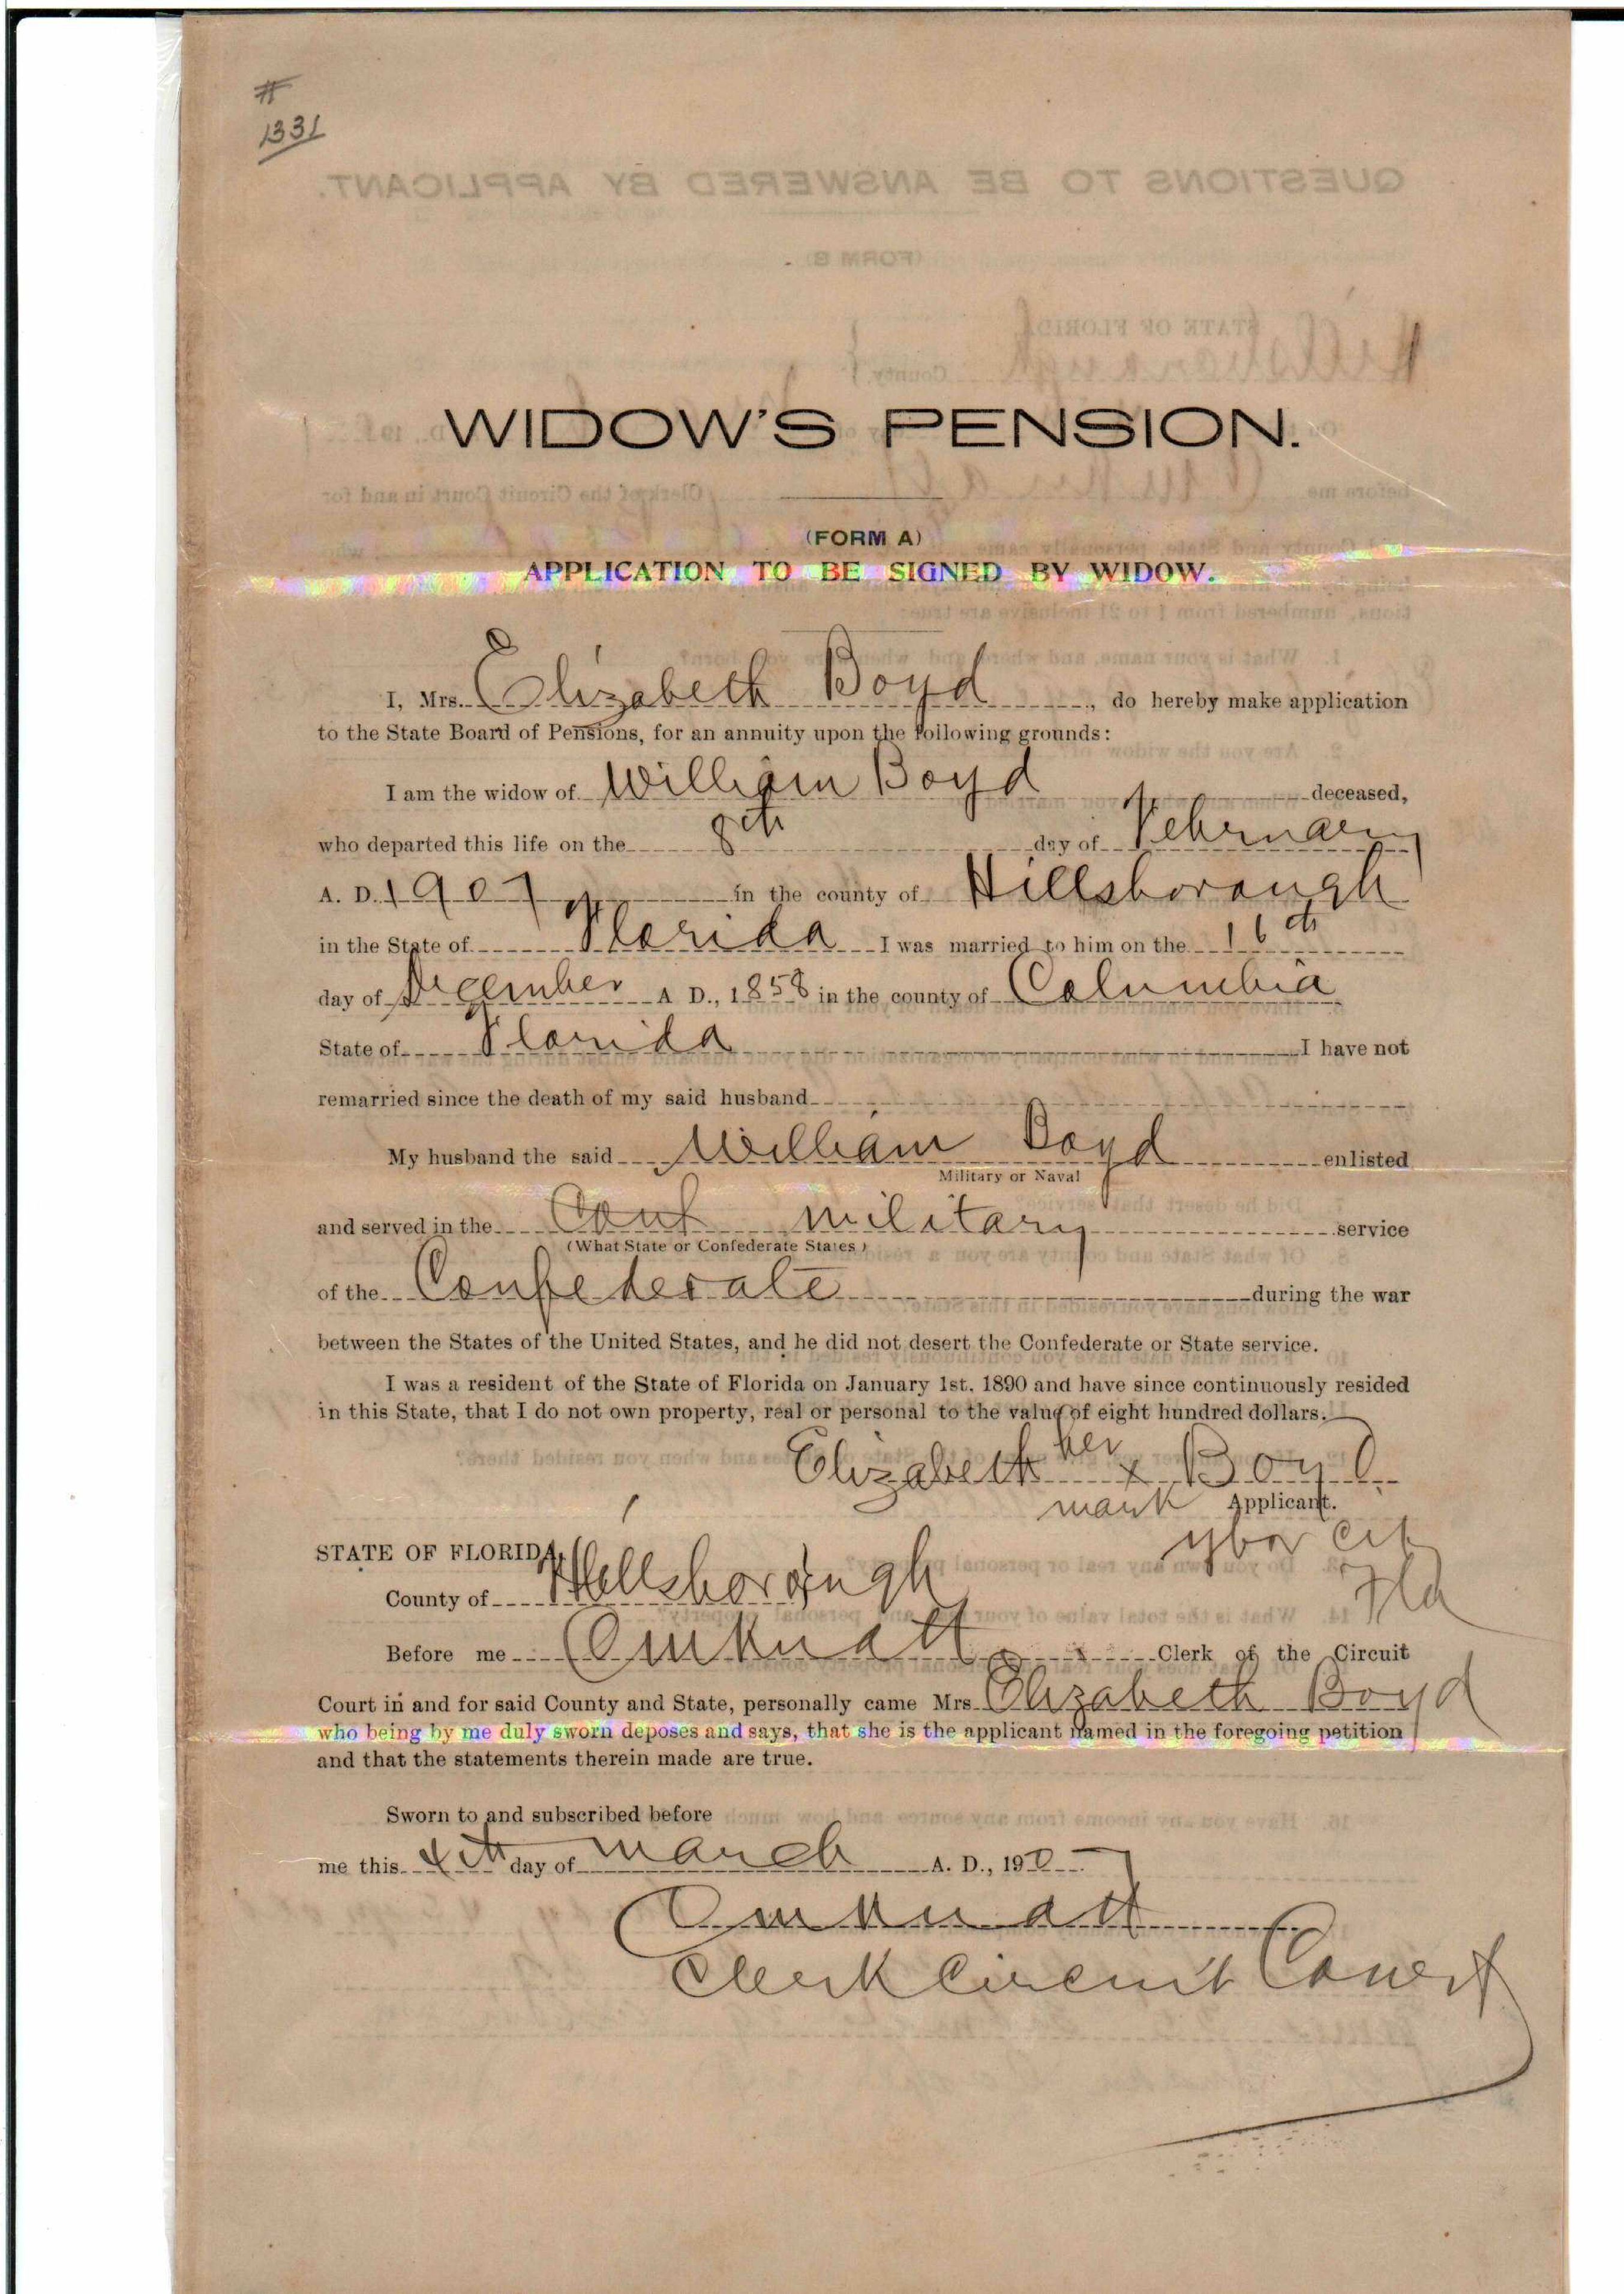 #
1331
WIDOW'S PENSION.
(FORM A)
APPLICATION TO BE SIGNED BY WIDOW.
I, Mrs. Elizabeth Boyd, do hereby make application
to the State Board of Pensions, for an annuity upon the following grounds:
I am the widow of William Boyd deceased,
who departed this life on the 8th day of February
A. D. 1907 in the county of Hillsborough
in the State of Florida I was married to him on the 16th
day of December A D., 1858 in the county of Columbia
State of Florida I have not
remarried since the death of my said husband
My husband the said William Boyd enlisted
Military or Naval
and served in the Conf military service
(What State or Confederate States)
of the Confederate during the war
between the States of the United States, and he did not desert the Confederate or State service.
I was a resident of the State of Florida on January 1st, 1890 and have since continuously resided
in this State, that I do not own property, real or personal to the value of eight hundred dollars.
her
Elizabeth x Boyd
mark Applicant.
Ybor City
Fla
STATE OF FLORIDA,
County of Hillsborough
Before me Clerk of the Circuit
Court in and for said County and State, personally came Mrs. Elizabeth Boyd
who being by me duly sworn deposes and says, that she is the applicant named in the foregoing petition
and that the statements therein made are true.
Sworn to and subscribed before
me this 4th day of March A. D., 1907
Clerk Circuit Court